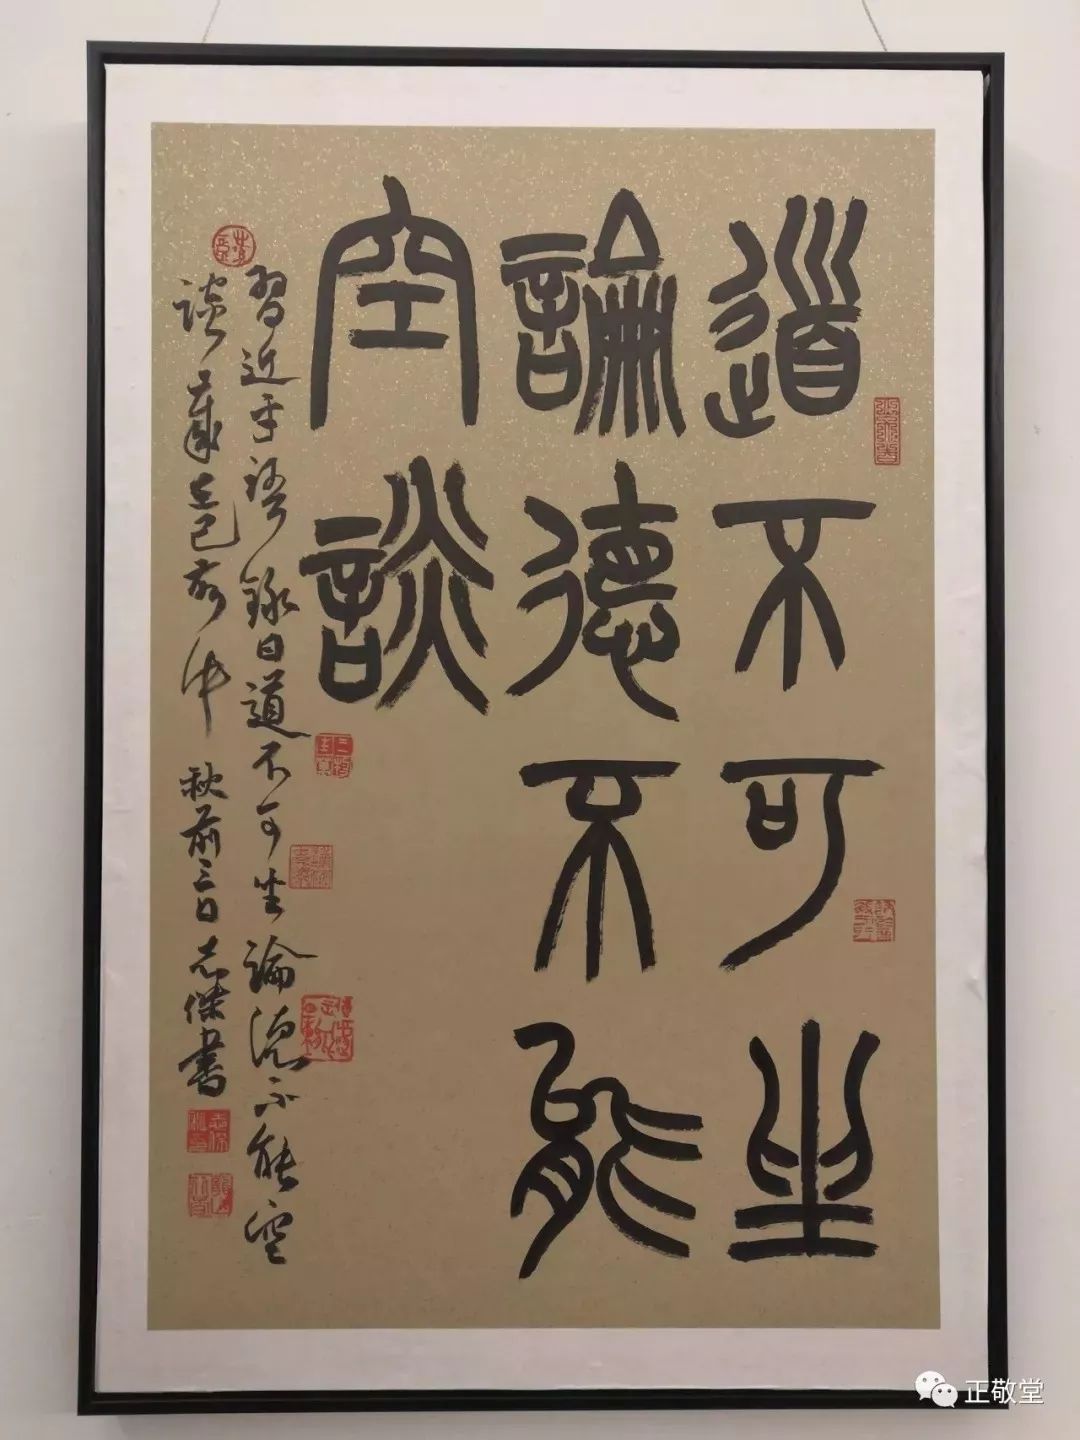 道不可坐
論德不能
空談
習近平語錄曰道不可坐論德不能空
談歲在己亥中秋前三日志傑書
正敬堂